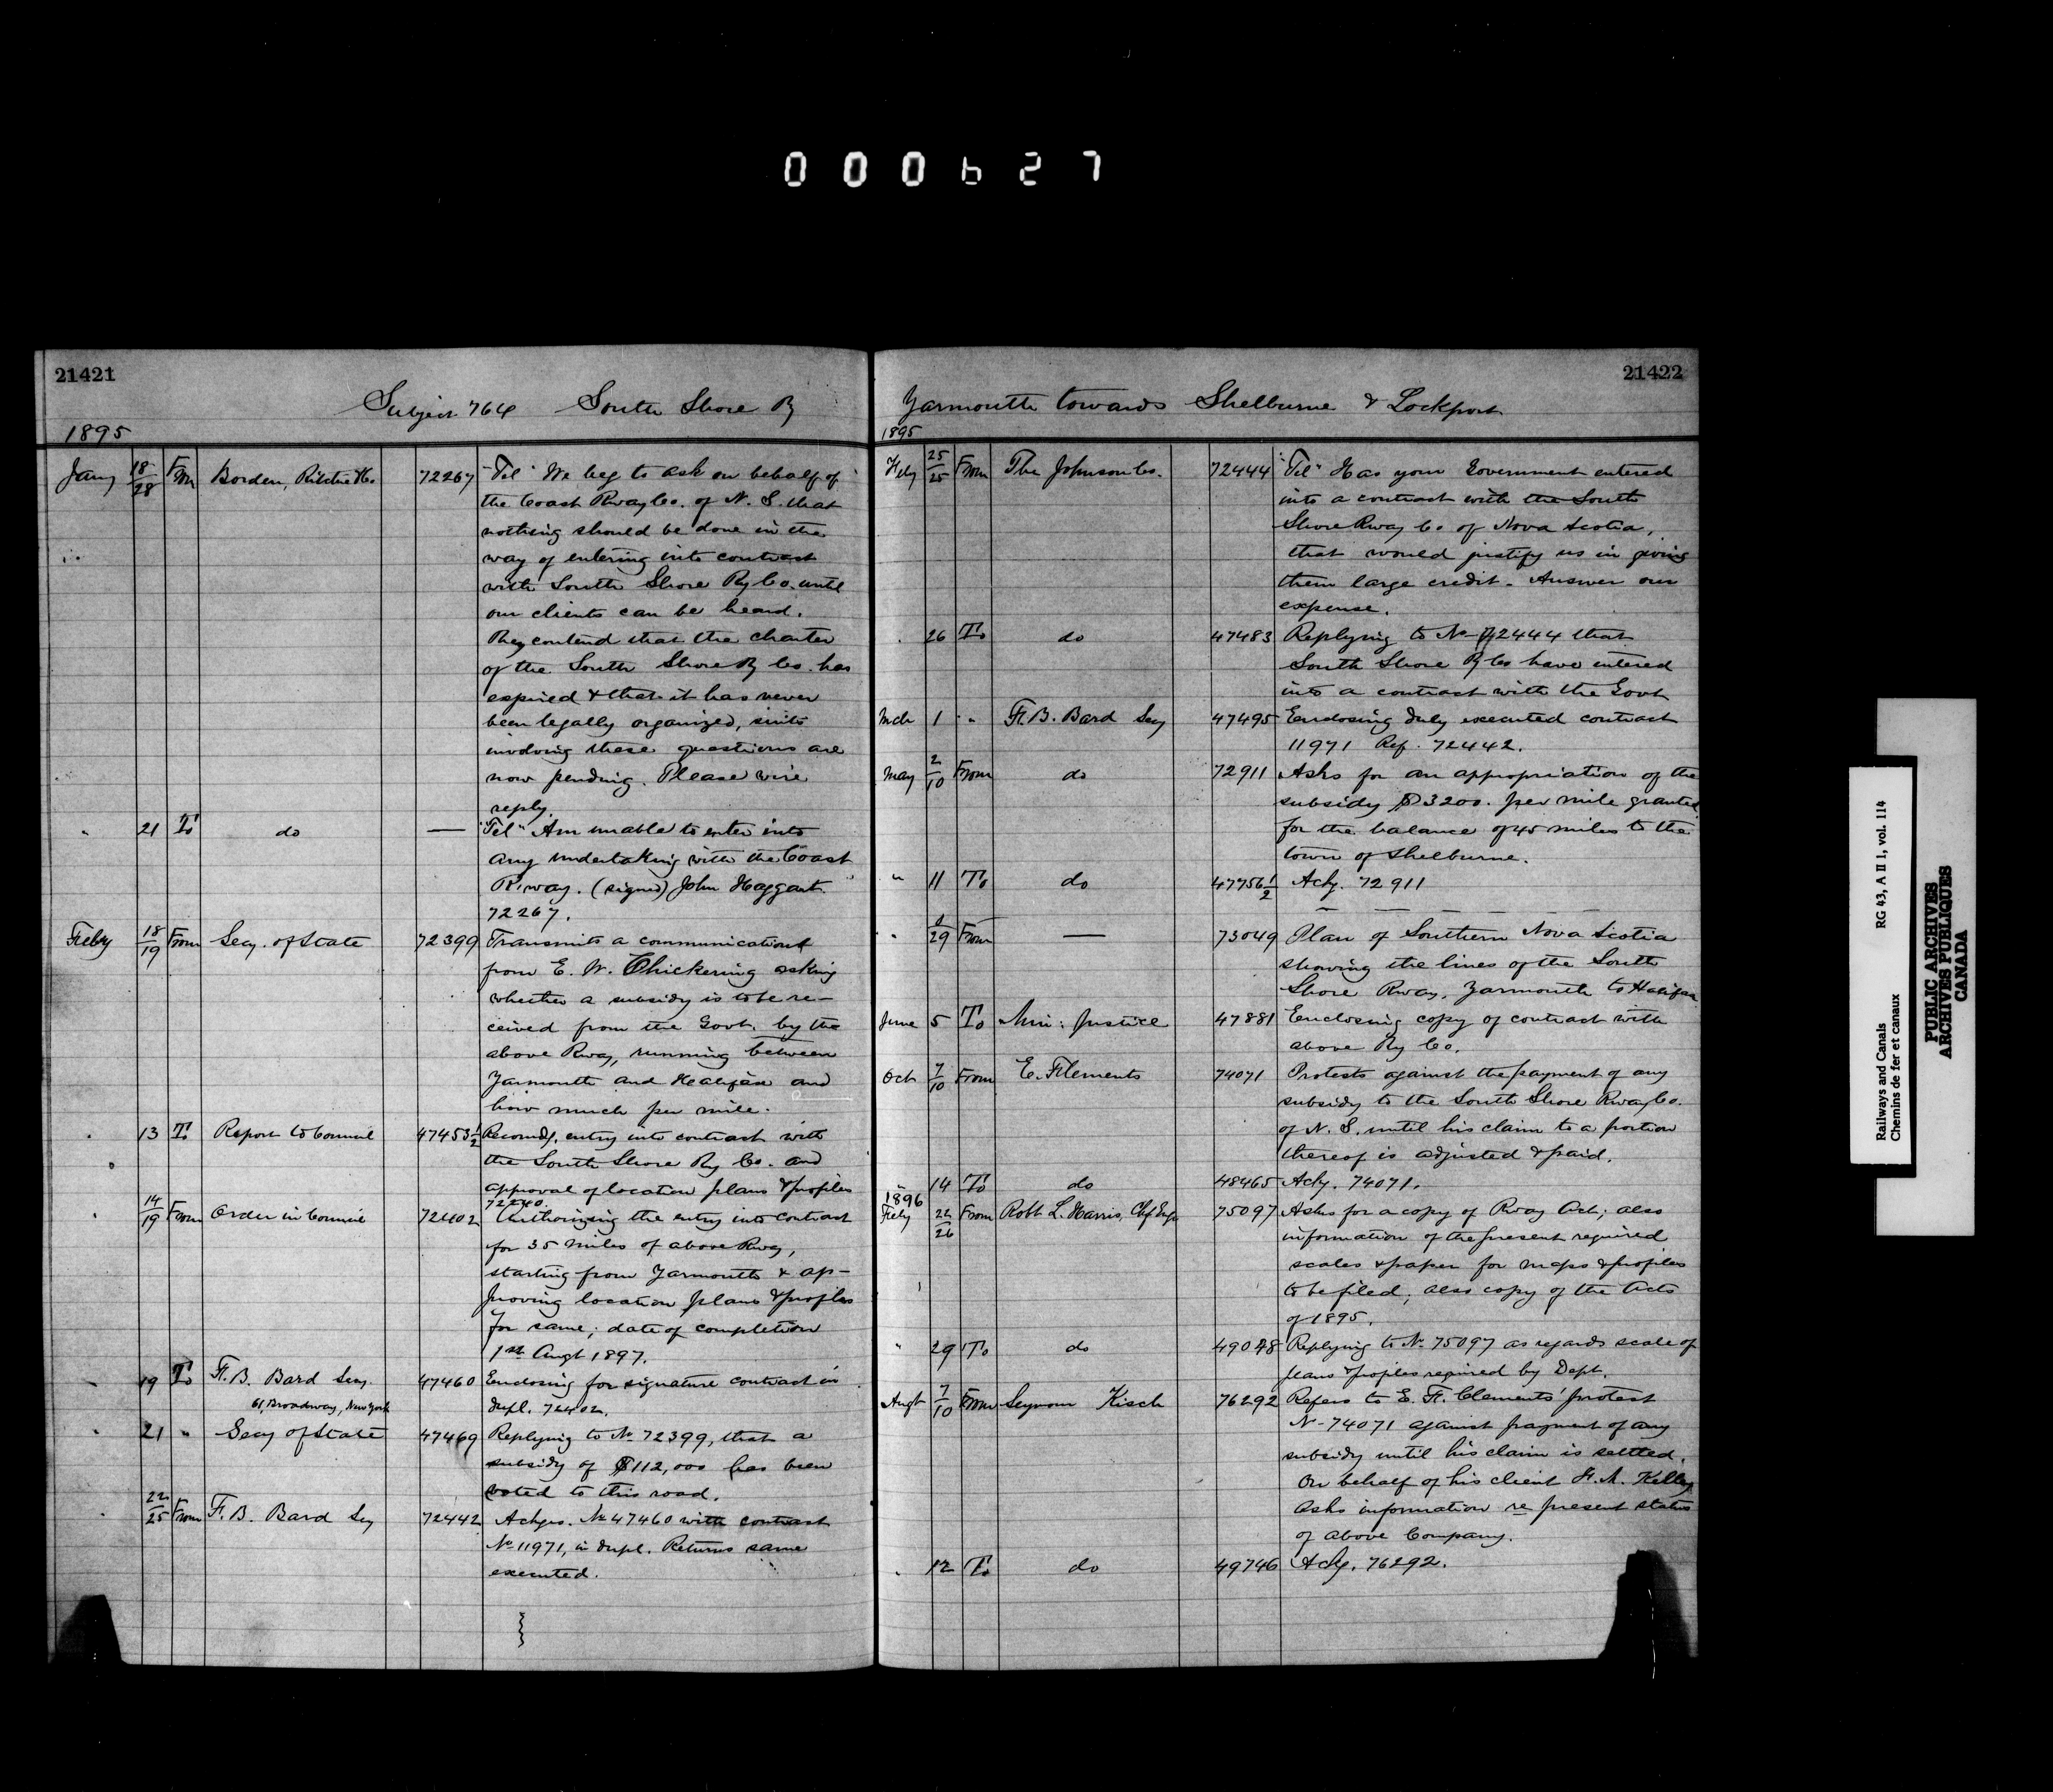 000627
21421
Subject 764 South Shore Ry
1895
Jany 18/28 From Borden, Ritchie & Co. 72267 "Tel" We beg to ask on behalf of
the Coast Rway Co. of N. S. that
nothing should be done in the
way of entering into contract
with South Shore Ry Co. until
our clients can be heard.
They contend that the charter
of the South Shore Ry Co. has
expired & that it has never
been legally organized, suits
involving these questions are
now pending. Please wire
reply.
" 21 To do — "Tel" Am unable to enter into
any undertaking with the Coast
R.way. (signed) John Haggart
72267.
Feby 18/19 From Secy. of State 72399 Transmits a communication
from E. W. Chickering asking
whether a subsidy is to be re-
ceived from the Govt. by the
above Rway, running between
Yarmouth and Halifax and
how much per mile.
" 13 To Report to Council 47453½ Recomdg. entry into contract with
the South Shore Ry Co. and
approval of location plans & profiles
72240.
" 14/19 From Order in Council 72402 Authorizing the entry into contract
for 35 miles of above Rway,
starting from Yarmouth & ap-
proving location plans & profiles
for same; date of completion
1st Augt 1897.
" 19 To F. B. Bard Secy. 47460 Enclosing for signature contract in
61, Broadway, New York dupl. 72402.
" 21 " Secy of State 47469 Replying to No 72399, that a
subsidy of $112,000 has been
voted to this road.
" 22/25 From F. B. Bard Secy 72442 Ackges. No 47460 with contract
No 11971, in dupl. Returns same
executed.
21422
Yarmouth towards Shelburne & Lockport
1895
Feby 25/25 From The Johnson Co. 72444 "Tel" Has your Government entered
into a contract with the South
Shore Rway Co of Nova Scotia,
that would justify us in giving
them large credit - Answer our
expense.
" 26 To do 47483 Replying to No 72444 that
South Shore Ry Co have entered
into a contract with the Govt
Mch 1 " F. B. Bard Secy 47495 Enclosing duly executed contract
11971 Ref. 72442.
May 2/10 From do 72911 Asks for an appropriation of the
subsidy $3200. per mile granted
for the balance of 45 miles to the
town of Shelburne.
" 11 To do 47756½ Ackg. 72911
" /29 From — 73049 Plan of Southern Nova Scotia
showing the lines of the South
Shore Rway, Yarmouth to Halifax
June 5 To Min: Justice 47881 Enclosing copy of contract with
above Ry Co.
Oct 7/10 From E. F. Clements 74071 Protests against the payment of any
subsidy to the South Shore Rway Co.
of N. S. until his claim to a portion
thereof is adjusted & paid.
" 14 To do 48465 Ackg. 74071.
1896
Feby 22/26 From Robt L. Harris, Chf Engr 75097 Asks for a copy of Rway Act; also
information of the present required
scales & paper for maps & profiles
to be filed; also copy of the Acts
of 1895.
" 29 To do 49048 Replying to No 75097 as regards scale of
plans & profiles required by Dept.
Augt 7/10 From Seymour Kisch 76292 Refers to E. F. Clements' protest
No 74071 against payment of any
subsidy until his claim is settled.
On behalf of his client H. M. Kelley
Asks information re present status
of above Company.
" 12 To do 49746 Ackg. 76292.
Railways and Canals RG 43, A II 1, vol. 114
Chemins de fer et canaux
PUBLIC ARCHIVES
ARCHIVES PUBLIQUES
CANADA